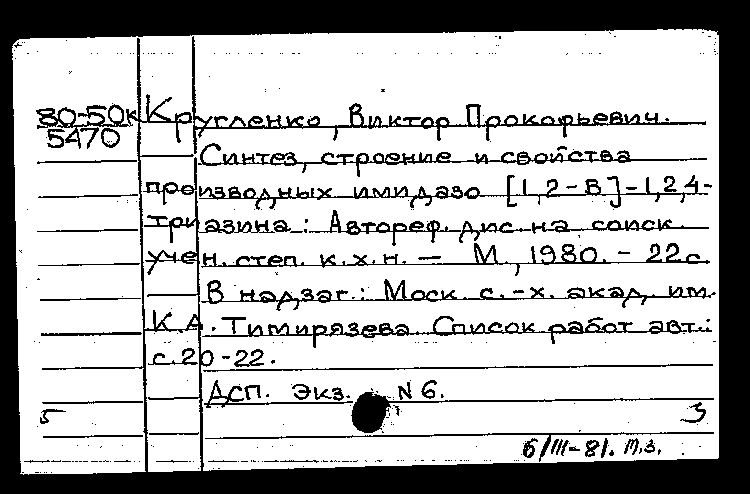 80-50к Кругленко, Виктор Прокофьевич.
5470
Синтез, строение и свойства
производных имидазо [1,2-В]-1,2,4-
триазина: Автореф. дис. на соиск.
учен. степ. к.х.н. — М., 1980. - 22с.
В надзаг.: Моск. с.-х. акад. им.
К.А. Тимирязева. Список работ авт.:
с.20-22.
ДСП. Экз. N 6.
5 3
6/III-81. т.з.